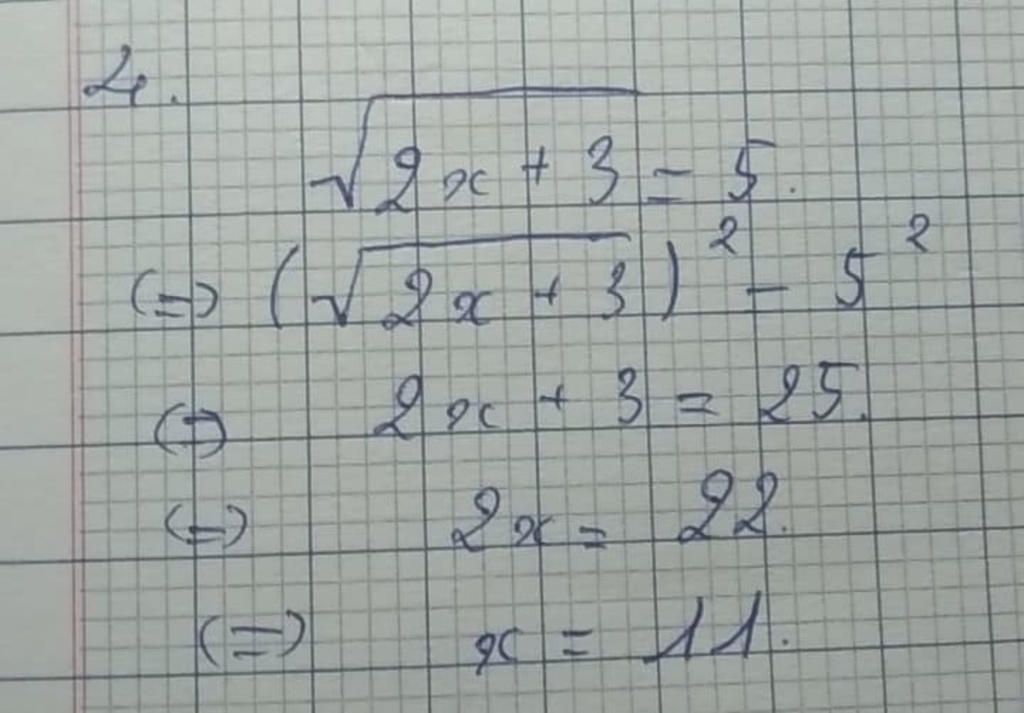 4.
√(2x + 3) = 5.
(=) (√(2x + 3))² = 5²
(=) 2x + 3 = 25.
(=) 2x = 22.
(=) x = 11.